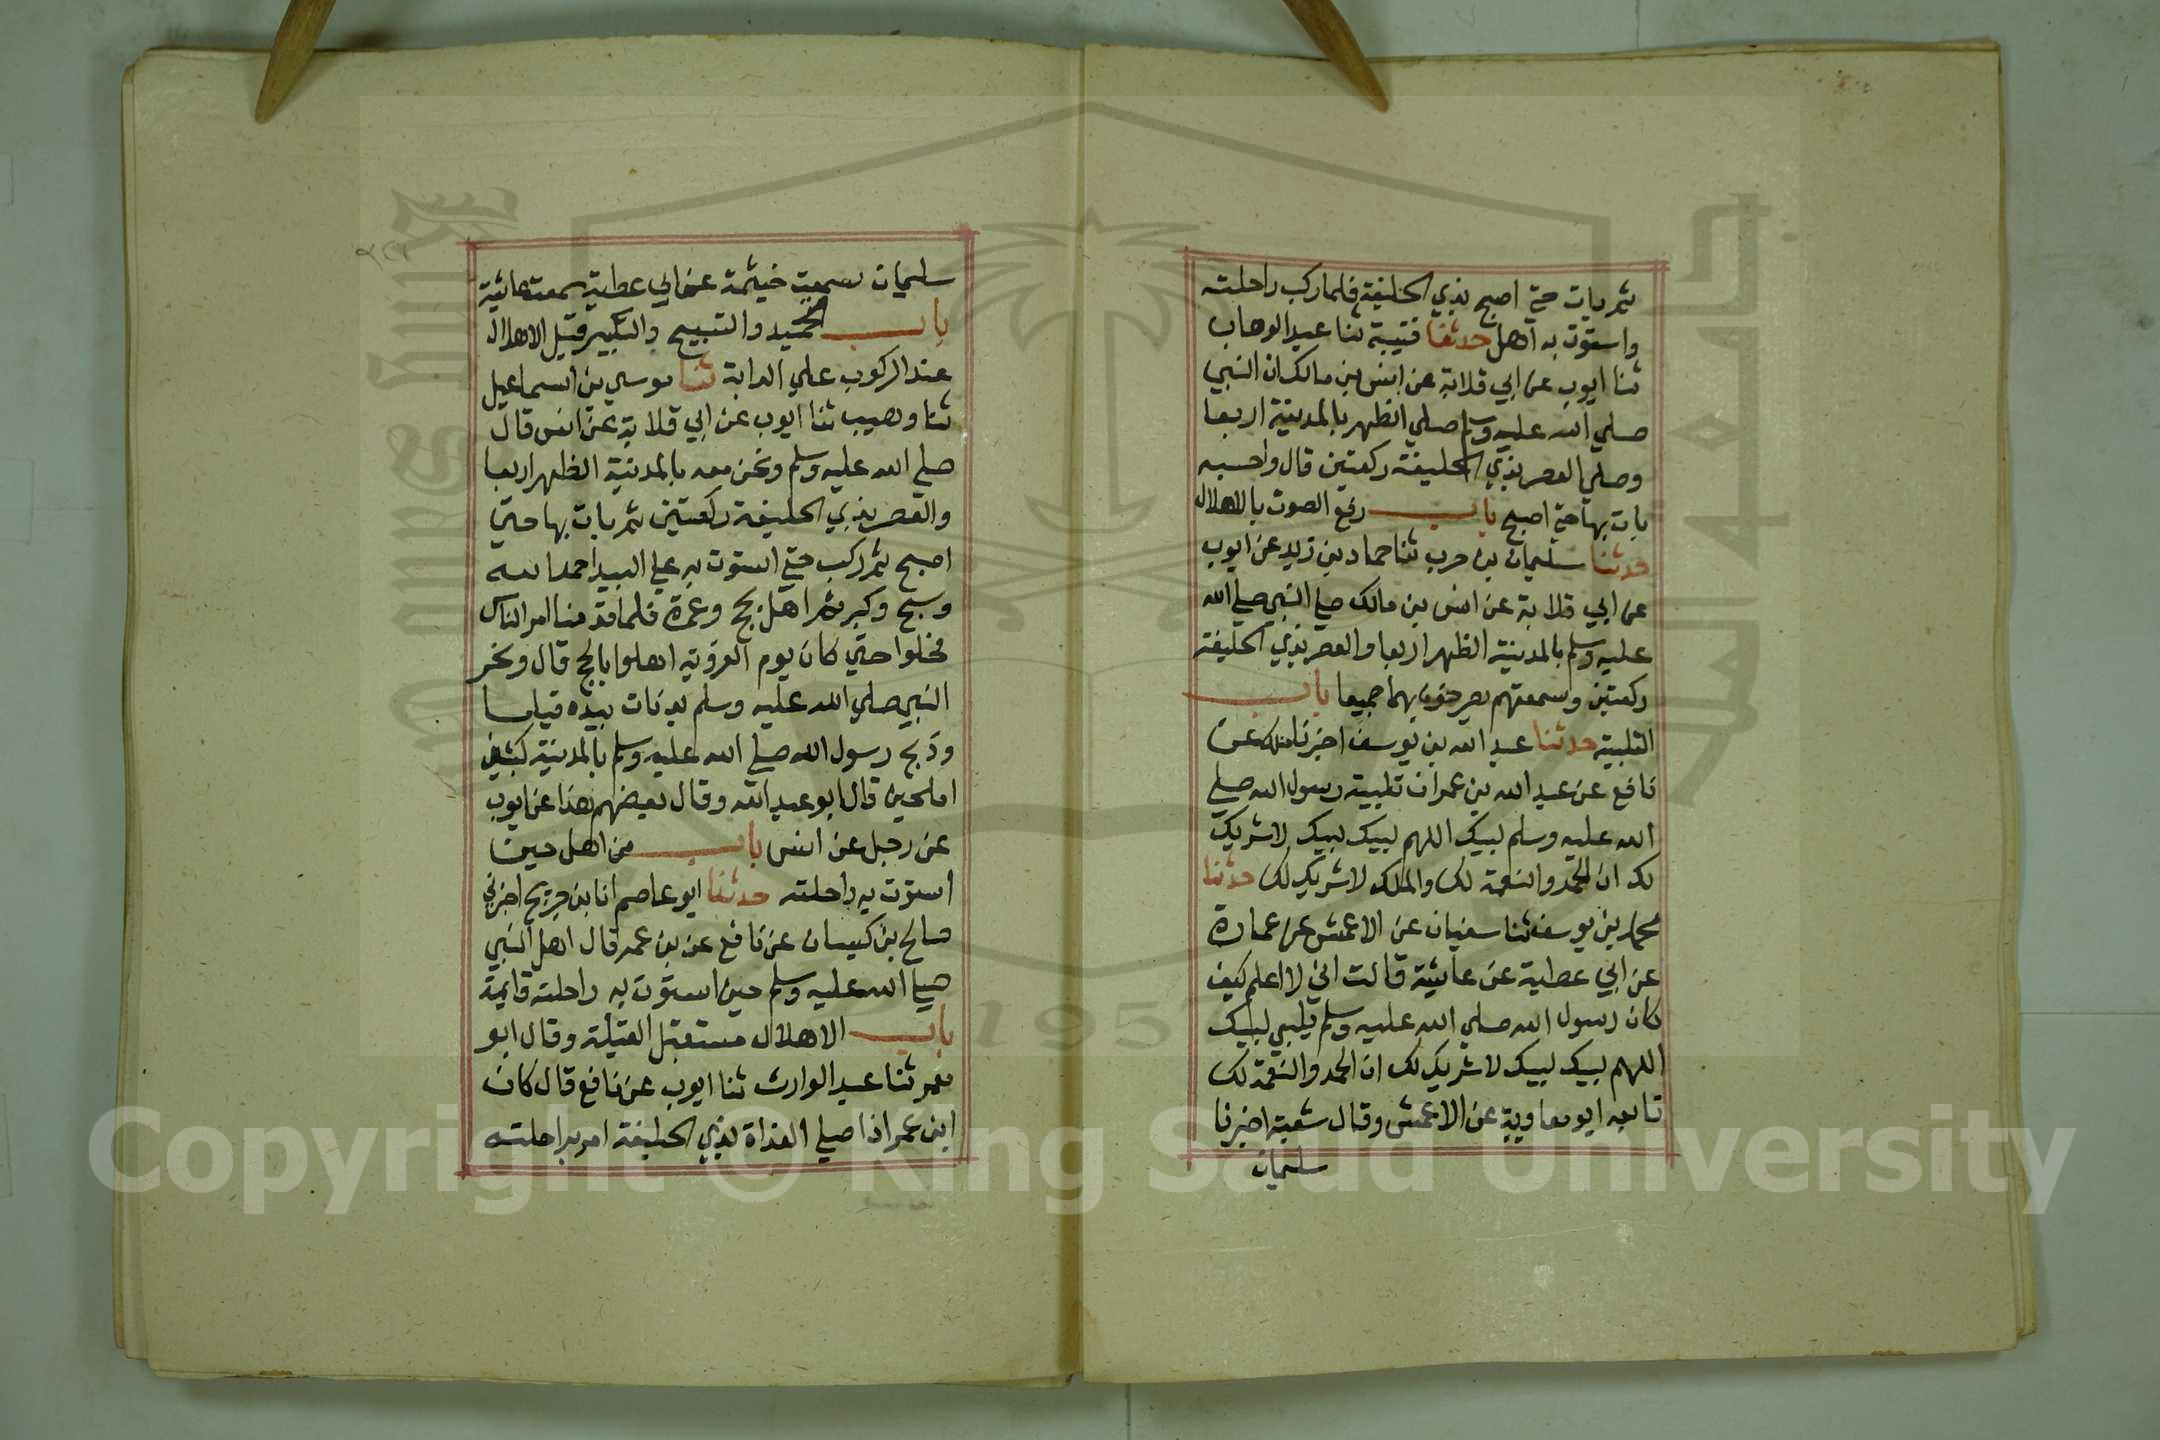 ثم بات حتي اصبح بذي الحليفة فلما ركب راحلته
واستوت به اهل حدثنا قتيبة ثنا عبد الوهاب
ثنا ايوب عن ابي قلابة عن انس بن مالك ان النبي
صلي الله عليه وسلم صلي الظهر بالمدينة اربعا
وصلي العصر بذي الحليفة ركعتين قال واحسبه
بات بها حتي اصبح باب رفع الصوت بالاهلال
حدثنا سليمان بن حرب ثنا حماد بن زيد عن ايوب
عن ابي قلابة عن انس بن مالك صلي النبي صلي الله
عليه وسلم بالمدينة الظهر اربعا والعصر بذي الحليفة
ركعتين وسمعتهم يصرخون بهما جميعا باب
التلبية حدثنا عبد الله بن يوسف اخبرنا ملك عن
نافع عن عبد الله بن عمر ان تلبية رسول الله صلي
الله عليه وسلم لبيك اللهم لبيك لبيك لا شريك
لك ان الحمد والنعمة لك والملك لا شريك لك حدثنا
محمد بن يوسف ثنا سفيان عن الاعمش عن عمارة
عن ابي عطية عن عائشة قالت اني لا اعلم كيف
كان رسول الله صلي الله عليه وسلم يلبي لبيك
اللهم لبيك لبيك لا شريك لك ان الحمد والنعمة لك
تابعه ابو معاوية عن الاعمش وقال شعبة اخبرنا
سليمان
سليمان سمعت خيثمة عن ابي عطية سمعت عائشة
باب التحميد والتسبيح والتكبير قبل الاهلال
عند الركوب علي الدابة ثنا موسي بن اسماعيل
ثنا وهيب ثنا ايوب عن ابي قلابة عن انس قال
صلي الله عليه وسلم ونحن معه بالمدينة الظهر اربعا
والعصر بذي الحليفة ركعتين ثم بات بها حتي
اصبح ثم ركب حتي استوت به علي البيدا حمد الله
وسبح وكبر ثم اهل بحج وعمرة فلما قدمنا امر الناس
فحلوا حتي كان يوم التروية اهلوا بالحج قال ونحر
النبي صلي الله عليه وسلم بدنات بيده قياما
وذبح رسول الله صلي الله عليه وسلم بالمدينة كبشين
املحين قال ابو عبد الله وقال بعضهم هذا عن ايوب
عن رجل عن انس باب من اهل حين
استوت به راحلته حدثنا ابو عاصم انا ابن جريج اخبرني
صالح بن كيسان عن نافع عن بن عمر قال اهل النبي
صلي الله عليه وسلم حين استوت به راحلته قايمة
باب الاهلال مستقبل القبلة وقال ابو
معمر ثنا عبد الوارث ثنا ايوب عن نافع قال كان
ابن عمر اذا صلي الغداة بذي الحليفة امر براحلته
Copyright © King Saud University
1957